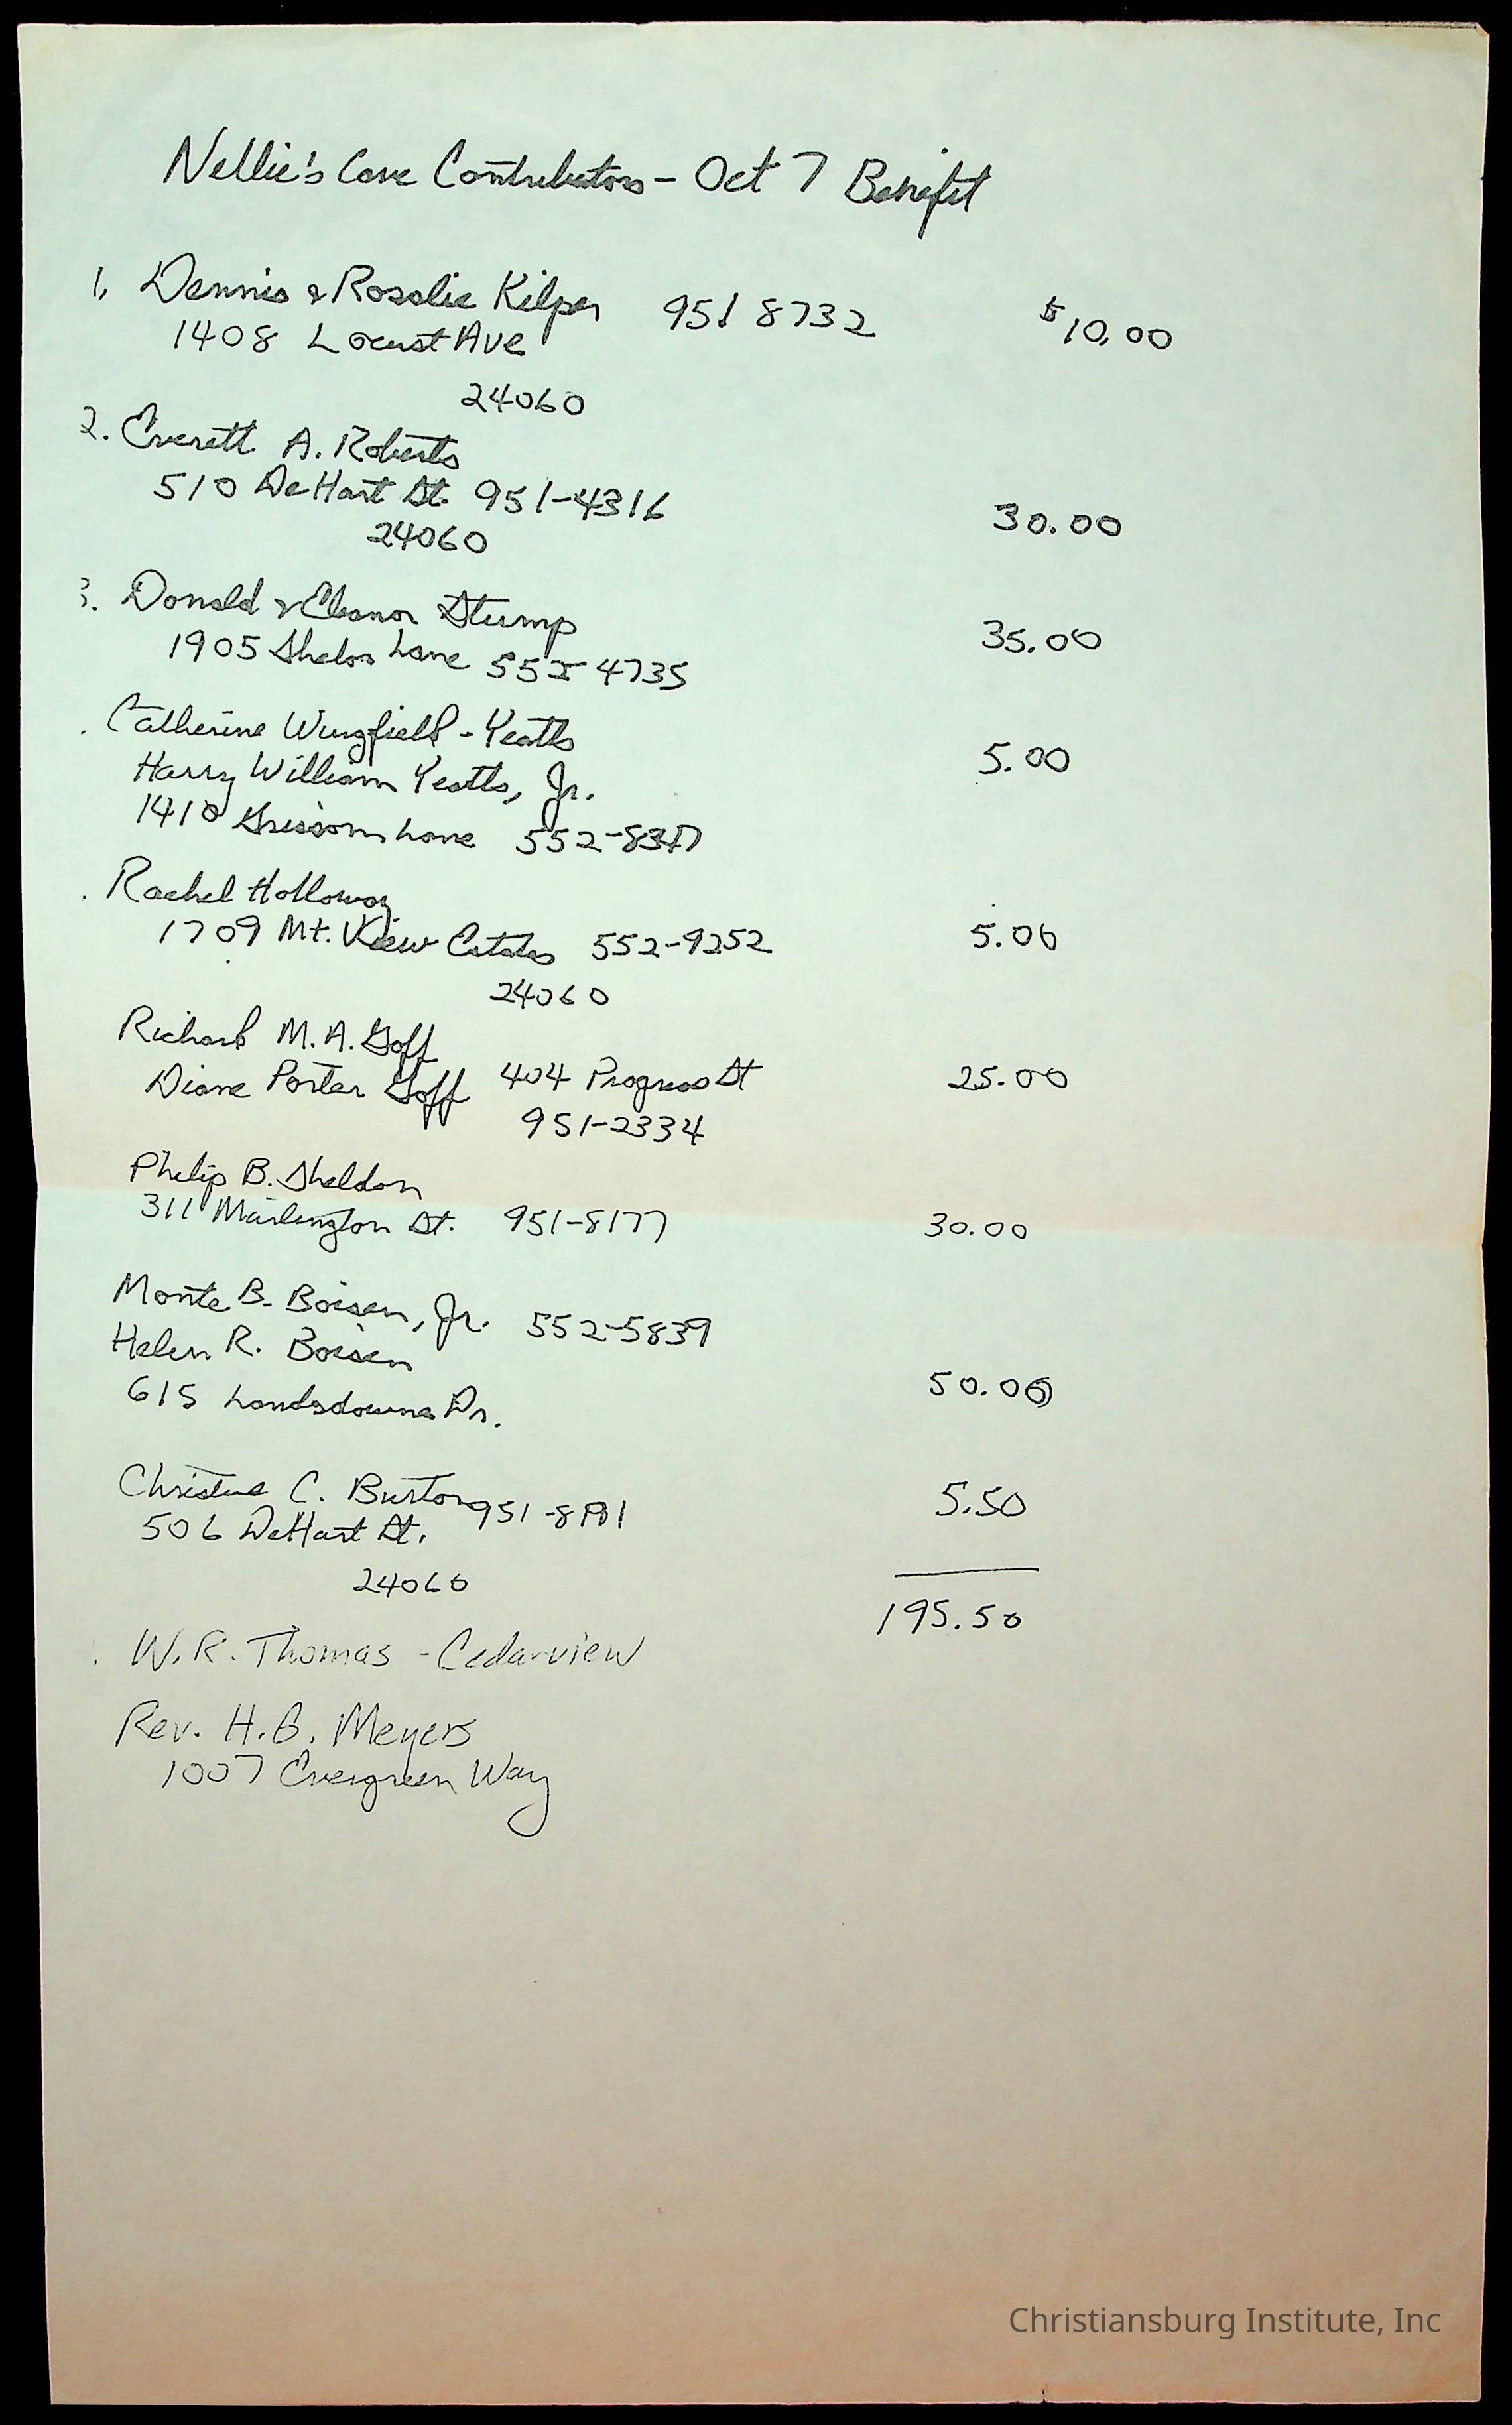 Nellie's Cave Contributors - Oct 7 Benefit
1. Dennis & Rosalie Kilper 951 8732 $10.00
1408 Locust Ave
24060
2. Everett A. Roberts
510 DeHart St. 951-4316 30.00
24060
3. Donald & Eleanor Stump 35.00
1905 Shelor Lane 552-4735
. Catherine Wingfield-Yeatts 5.00
Harry William Yeatts, Jr.
1410 Grissom Lane 552-
. Rachel Holloway
1709 Mt. View Estates 552-9252 5.00
24060
Richard M.A. Goff
Diane Porter Goff 404 Progress St 25.00
951-2334
Philip B. Sheldon
311 Marlington St. 951-8177 30.00
Monte B. Boisen, Jr. 552-5839
Helen R. Boisen 50.00
615 Landsdowne Dr.
Christine C. Burton 951- 5.50
506 DeHart St.
24060
195.50
. W.R. Thomas - Cedarview
Rev. H.B. Meyers
1007 Evergreen Way
Christiansburg Institute, Inc